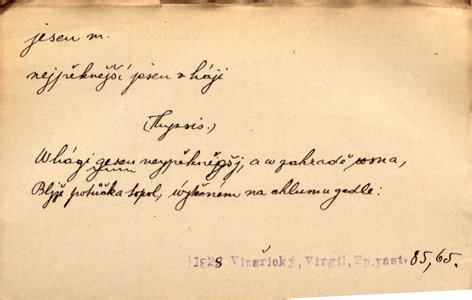 jesen m.
nejpěknější jesen v háji
(Thyrsis.)
W hági gesen neypěkněgšj, a w zahradě sosna,
Bljže potůčka topol, w wýsteném na chlumu gedle:
1828 Vinařický, Virgil, Zp.past. 85,65.